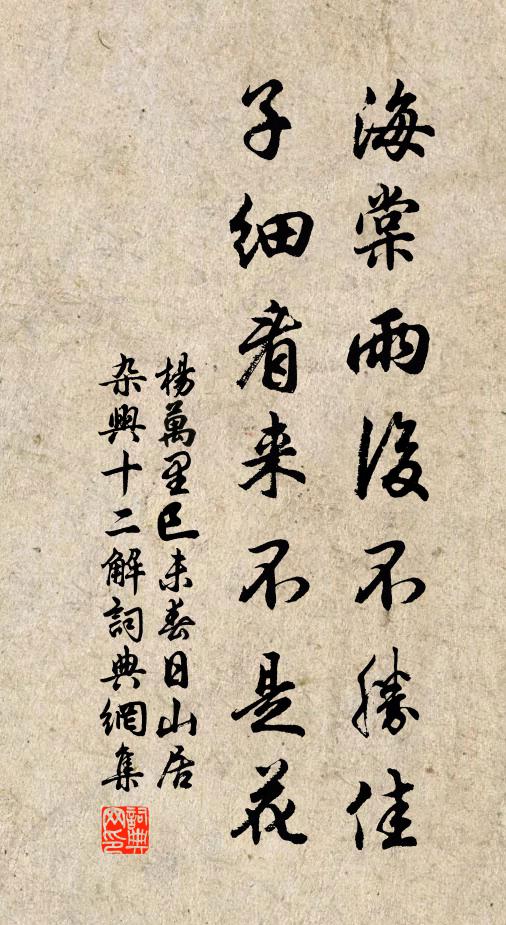 海棠雨後不勝佳
子細看来不是花
楊萬里已未春日山居
杂興十二解詞典網集
詞典网印